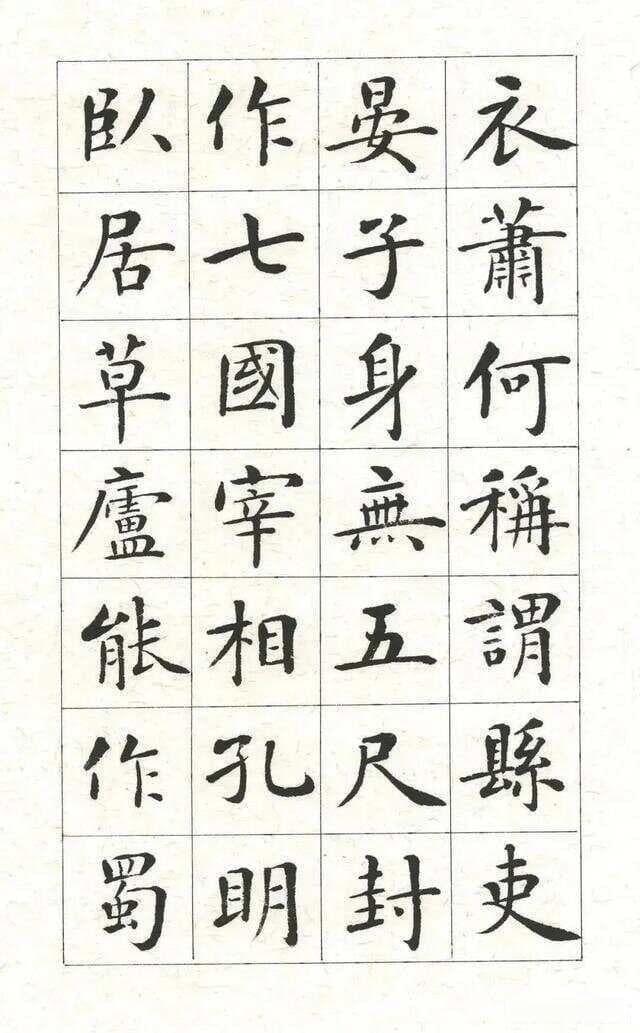 衣蕭何稱謂縣吏
晏子身無五尺封
作七國宰相孔明
臥居草廬能作蜀